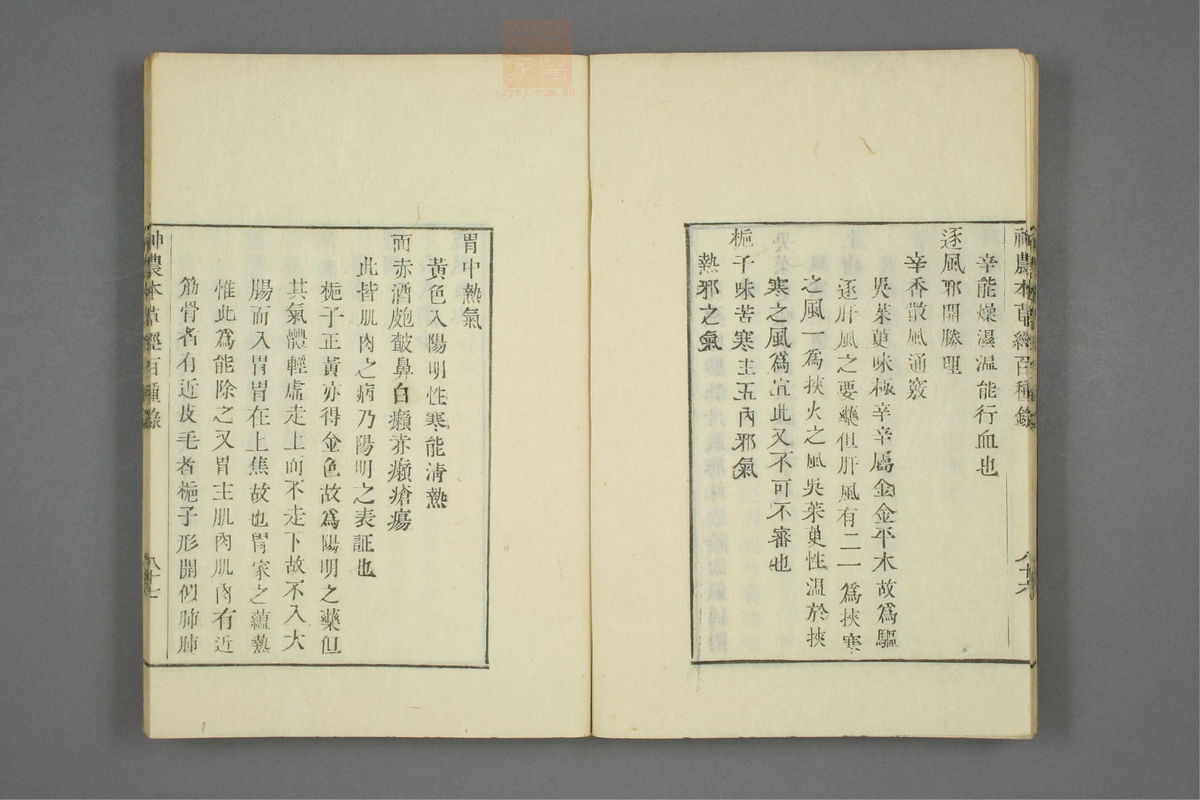 神農本草經百種錄
八十六
辛能燥濕溫能行血也
逐風邪開腠理
辛香散風通竅
吳茱萸味極辛辛屬金金平木故爲驅
逐肝風之要藥但肝風有二一爲挾寒
之風一爲挾火之風吳茱萸性溫於挾
寒之風爲宜此又不可不審也
梔子味苦寒主五內邪氣
熱邪之氣
胃中熱氣
黃色入陽明性寒能淸熱
面赤酒皰皶鼻白癩赤癩瘡瘍
此皆肌肉之病乃陽明之表証也
梔子正黃亦得金色故爲陽明之藥但
其氣體輕虛走上而不走下故不入大
腸而入胃胃在上焦故也胃家之蘊熱
惟此爲能除之又胃主肌肉肌肉有近
筋骨者有近皮毛者梔子形開似肺肺
神農本草經百種錄
八十七
zysj.com.cn